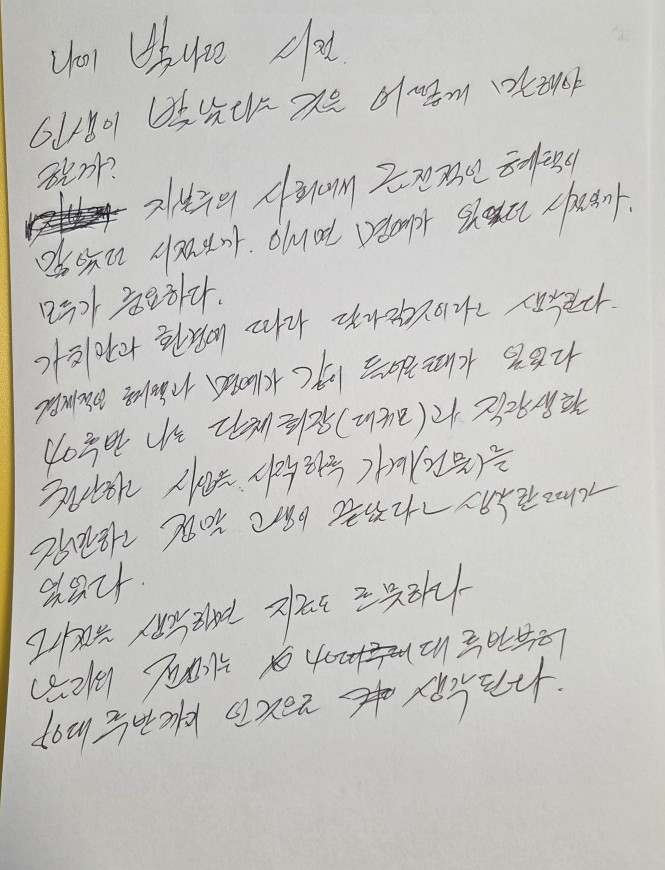 나의 빛나던 시절.
인생이 빛났다는 것을 어떻게 말해야
할까?
자본주의 사회에서 금전적인 혜택이
많았던 시절일까. 아니면 명예가 있었던 시절일까.
모두가 중요하다.
가치관과 환경에 따라 달라질것이라고 생각한다.
경제적인 혜택과 명예가 같이 들어온때가 있었다
40후반 나는 단체회장(대규모)과 직장생활
청산하고 사업을 시작한후 가게(건물)를
장만하고 정말 고생이 끝났다고 생각한때가
있었다.
그시절을 생각하면 지금도 흐뭇하다
나의 전성기는 40대 후반부터
50대 후반까지 인것으로 생각된다.